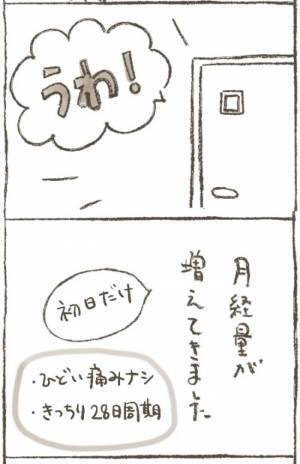 うわ！
月経量が
増えてきました
初日だけ
・ひどい痛みナシ
・きっちり28日周期